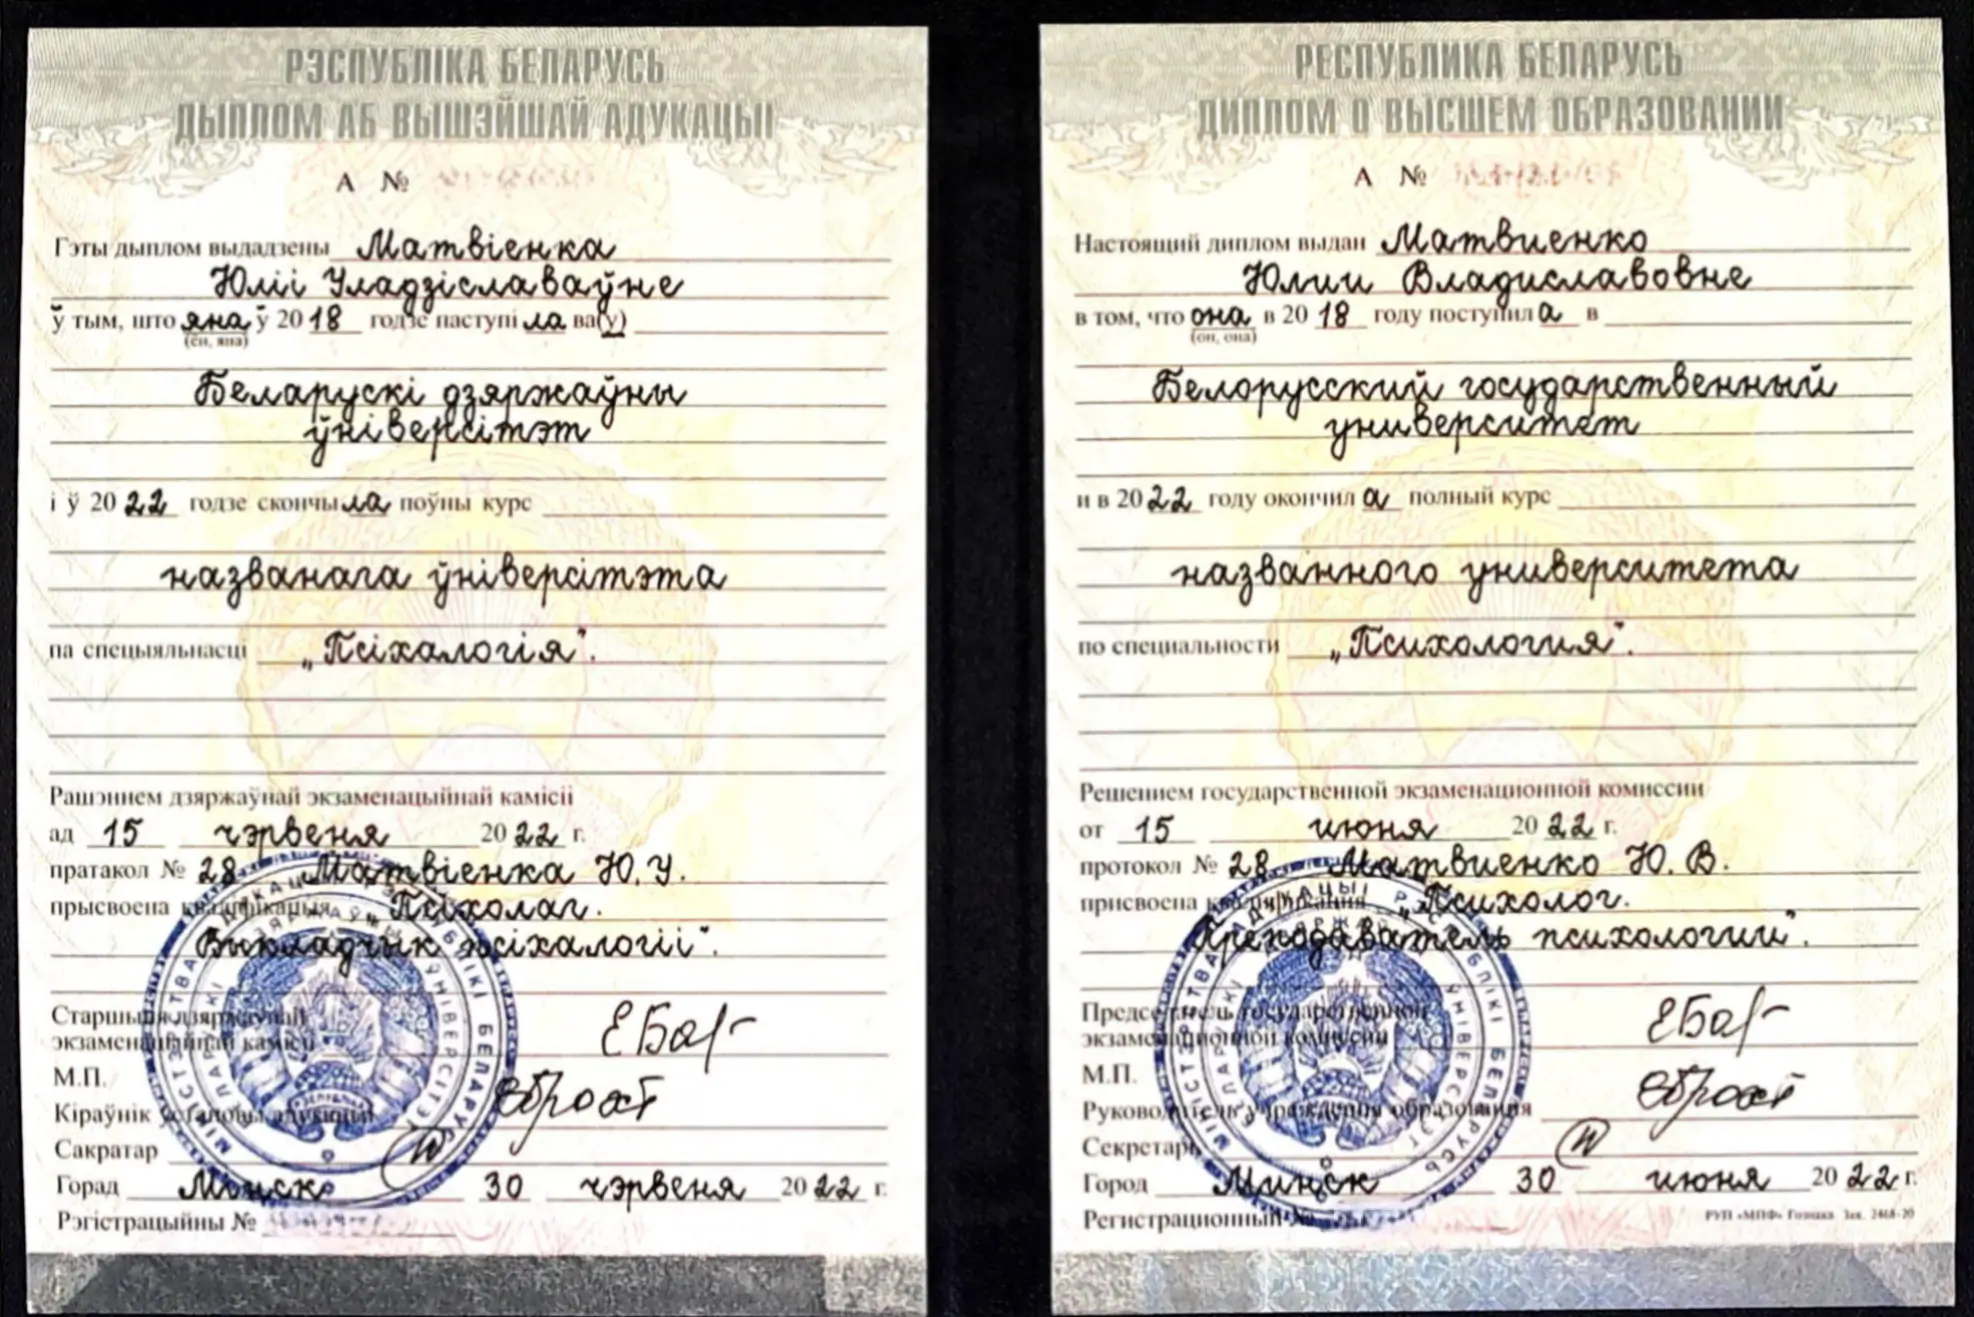 РЭСПУБЛІКА БЕЛАРУСЬ
ДЫПЛОМ АБ ВЫШЭЙШАЙ АДУКАЦЫІ
А №
Гэты дыплом выдадзены Матвіенка
Юліі Уладзіславаўне
ў тым, што яна ў 2018 годзе наступіла ва(у)
(ён, яна)
Беларускі дзяржаўны
ўніверсітэт
і ў 2022 годзе скончыла поўны курс
названага ўніверсітэта
па спецыяльнасці „Псіхалогія".
Рашэннем дзяржаўнай экзаменацыйнай камісіі
ад 15 чэрвеня 2022 г.
пратакол № 28 Матвіенка Ю.У.
прысвоена кваліфікацыя „Псіхолаг.
Выкладчык псіхалогіі".
Старшыня дзяржаўнай
экзаменацыйнай камісіі
М.П.
Кіраўнік установы адукацыі
Сакратар
Горад Мінск 30 чэрвеня 2022 г.
Рэгістрацыйны №
МІНІСТЭРСТВА АДУКАЦЫІ РЭСПУБЛІКІ БЕЛАРУСЬ
БЕЛАРУСКІ ДЗЯРЖАЎНЫ ЎНІВЕРСІТЭТ
РЕСПУБЛИКА БЕЛАРУСЬ
ДИПЛОМ О ВЫСШЕМ ОБРАЗОВАНИИ
А №
Настоящий диплом выдан Матвиенко
Юлии Владиславовне
в том, что она в 2018 году поступила в
(он, она)
Белорусский государственный
университет
и в 2022 году окончила полный курс
названного университета
по специальности „Психология".
Решением государственной экзаменационной комиссии
от 15 июня 2022 г.
протокол № 28 Матвиенко Ю.В.
присвоена квалификация „Психолог.
Преподаватель психологии".
Председатель государственной
экзаменационной комиссии
М.П.
Руководитель учреждения образования
Секретарь
Город Минск 30 июня 2022 г.
Регистрационный №
РУП «МПФ» Гознака Зак. 2468-20
МІНІСТЭРСТВА АДУКАЦЫІ РЭСПУБЛІКІ БЕЛАРУСЬ
БЕЛАРУСКІ ДЗЯРЖАЎНЫ ЎНІВЕРСІТЭТ